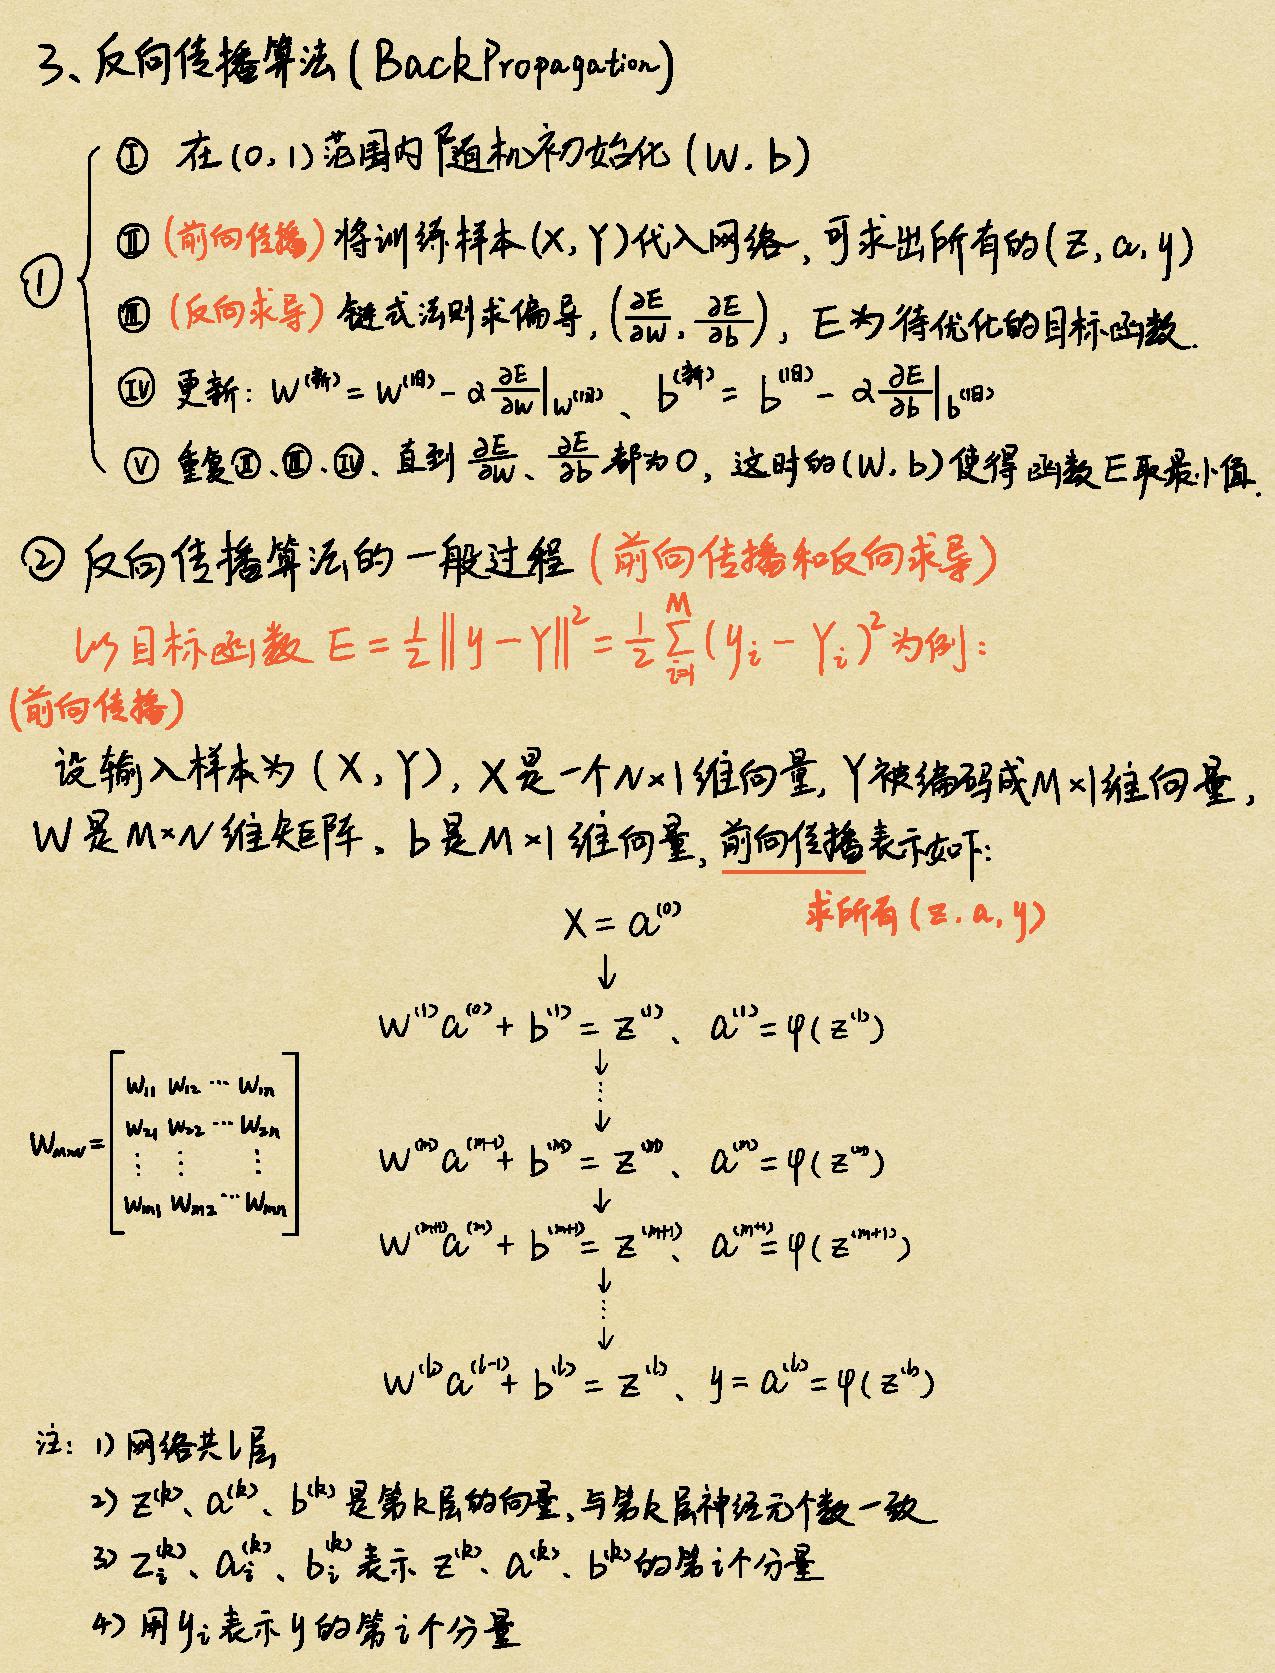 3、反向传播算法(BackPropagation)
① Ⅰ 在(0,1)范围内随机初始化(W,b)
Ⅱ (前向传播)将训练样本(X,Y)代入网络,可求出所有的(z,a,y)
Ⅲ (反向求导)链式法则求偏导,(∂E/∂W,∂E/∂b),E为待优化的目标函数.
Ⅳ 更新:W^(新)=W^(旧)-α∂E/∂W|W^(旧)、b^(新)=b^(旧)-α∂E/∂b|b^(旧)
Ⅴ 重复Ⅱ、Ⅲ、Ⅳ、直到∂E/∂W、∂E/∂b都为0,这时的(W,b)使得函数E取最小值.
② 反向传播算法的一般过程(前向传播和反向求导)
以目标函数 E=1/2||y-Y||²=1/2∑_{i=1}^{M}(y_i-Y_i)²为例:
(前向传播)
设输入样本为(X,Y),X是一个N×1维向量,Y被编码成M×1维向量,
W是M×N维矩阵、b是M×1维向量,前向传播表示如下:
X=a^(0) 求所有(z,a,y)
↓
W^(1)a^(0)+b^(1)=z^(1)、a^(1)=φ(z^(1))
↓
⋮
↓
W_{m×n}=[w11 w12 … w1n
w21 w22 … w2n
⋮ ⋮ ⋮
wm1 wm2 … wmn]
W^(m)a^(m-1)+b^(m)=z^(m)、a^(m)=φ(z^(m))
↓
W^(m+1)a^(m)+b^(m+1)=z^(m+1)、a^(m+1)=φ(z^(m+1))
↓
⋮
↓
W^(l)a^(l-1)+b^(l)=z^(l)、y=a^(l)=φ(z^(l))
注:1)网络共l层
2)z^(k)、a^(k)、b^(k)是第k层的向量,与第k层神经元个数一致
3)z_i^(k)、a_i^(k)、b_i^(k)表示z^(k)、a^(k)、b^(k)的第i个分量
4)用y_i表示y的第i个分量